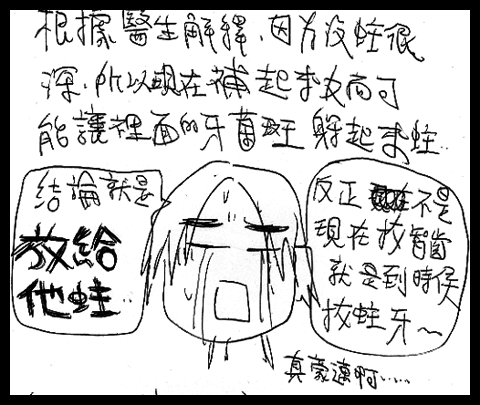 根據醫生解釋.因為沒蛀很
深.所以現在補起來反而可
能讓裡面的牙菌斑 躲起來蛀..
結論就是
放給
他蛀..
反正 不是
現在拔智齒
就是到時候
拔蛀牙～
真豪邁啊.....